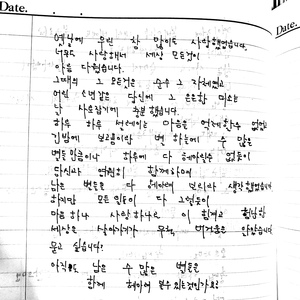 Date.
Date.
옛날에 우린 참 많이도 사랑했었습니다.
너무도 사랑해서 세상 모든것이
아름 다웠습니다.
그때의 그 모든것은 순수 그 자체였고
어린 소년같은 당신에 그 은은한 미소는
날 사로잡기에 충분 했습니다.
하루 하루 설레이는 마음을 억제할수 없었고
깊은밤에 보고픔이란 밤 하늘에 수 많은
별들 만큼이나 하루에 다 헤아릴순 없듯이
당신과 영원히 함께하며
남은 별들을 다 헤아려 보리라 생각 했었습니다
하지만 모든 인연이 다 그렇듯이
마음 하나 사랑 하나로 이 힘겹고 험난한
세상은 살아가기가 무척 버거움은 안았습니다.
묻고 싶습니다!
아직도 남은 수 많은 별들은
함께 헤아려 볼수 있는것인가요?